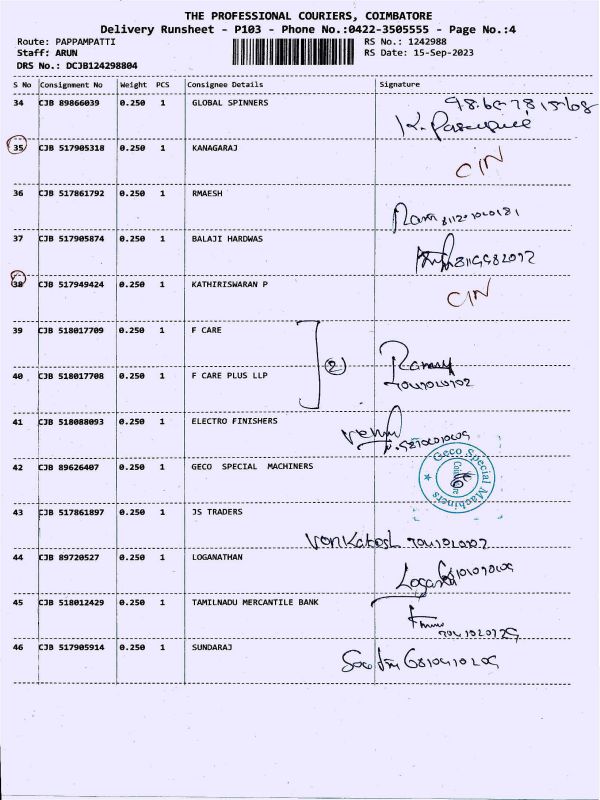 THE PROFESSIONAL COURIERS, COIMBATORE
Delivery Runsheet - P103 - Phone No.:0422-3505555 - Page No.:4
Route: PAPPAMPATTI RS No.: 1242988
Staff: ARUN RS Date: 15-Sep-2023
DRS No.: DCJB124298804
S No Consignment No Weight PCS Consignee Details Signature
34 CJB 89866039 0.250 1 GLOBAL SPINNERS
35 CJB 517905318 0.250 1 KANAGARAJ CIN
36 CJB 517861792 0.250 1 RMAESH
37 CJB 517905874 0.250 1 BALAJI HARDWAS
38 CJB 517949424 0.250 1 KATHIRISWARAN P CIN
39 CJB 518017709 0.250 1 F CARE
2
40 CJB 518017708 0.250 1 F CARE PLUS LLP
41 CJB 518088093 0.250 1 ELECTRO FINISHERS
42 CJB 89626407 0.250 1 GECO SPECIAL MACHINERS Geco Special Machiners
43 CJB 517861897 0.250 1 JS TRADERS
Venkatesh
44 CJB 89720527 0.250 1 LOGANATHAN
45 CJB 518012429 0.250 1 TAMILNADU MERCANTILE BANK
46 CJB 517905914 0.250 1 SUNDARAJ